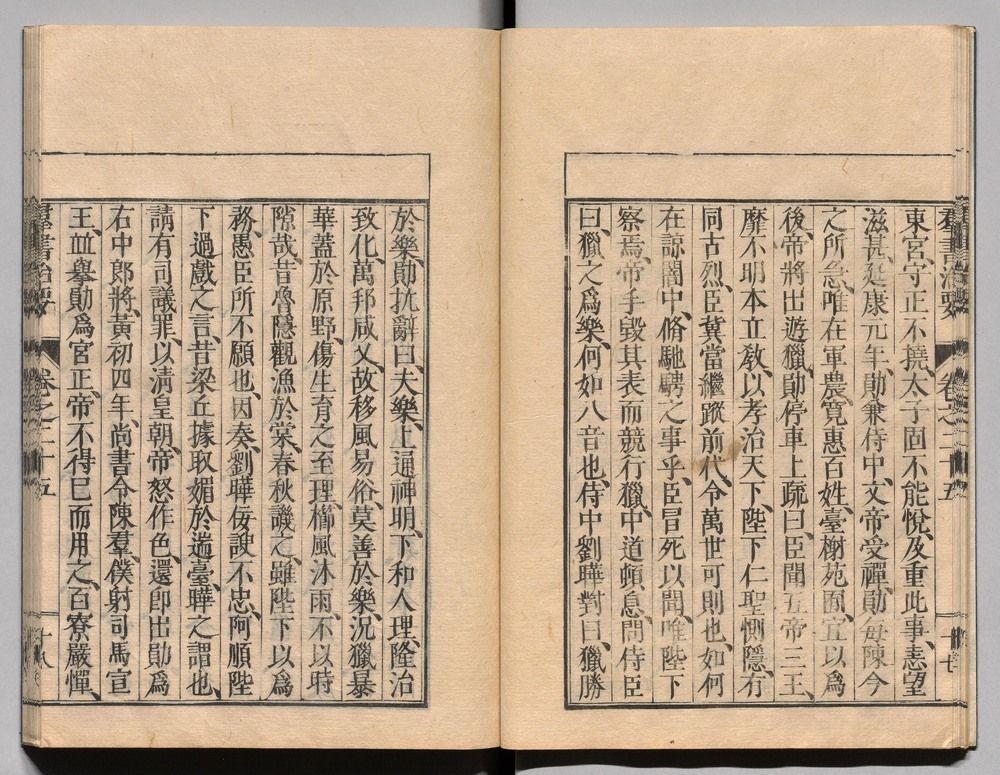 羣書治要 卷之二十五 十七
東宮、守正不撓、太子固不能悅、及重此事、恚望
滋甚、延康元年、勛兼侍中、文帝受禪、勛每陳今
之所急、唯在軍農、寬惠百姓、臺榭苑囿、宜以爲
後、帝將出遊獵、勛停車上疏曰、臣聞五帝三王、
靡不明本立敎、以孝治天下、陛下仁聖惻隱、有
同古烈、臣冀當繼蹤前代、令萬世可則也、如何
在諒闇中、脩馳騁之事乎、臣冒死以聞、唯陛下
察焉、帝手毀其表而競行獵、中道頓息、問侍臣
曰、獵之爲樂、何如八音也、侍中劉曄對曰、獵勝
於樂、勛抗辭曰、夫樂上通神明、下和人理、隆治
致化、萬邦咸乂、故移風易俗、莫善於樂、況獵暴
華蓋於原野、傷生育之至理、櫛風沐雨、不以時
隙哉、昔魯隱觀漁於棠、春秋譏之、雖陛下以爲
務、愚臣所不願也、因奏、劉曄佞諛不忠、阿順陛
下過戲之言、昔梁丘據取媚於遄臺、曄之謂也、
請有司議罪、以淸皇朝、帝怒作色、還卽出勛爲
右中郎將、黃初四年、尚書令陳羣、僕射司馬宣
王、並擧勛爲宮正、帝不得已而用之、百寮嚴憚、
羣書治要 卷之二十五 十八